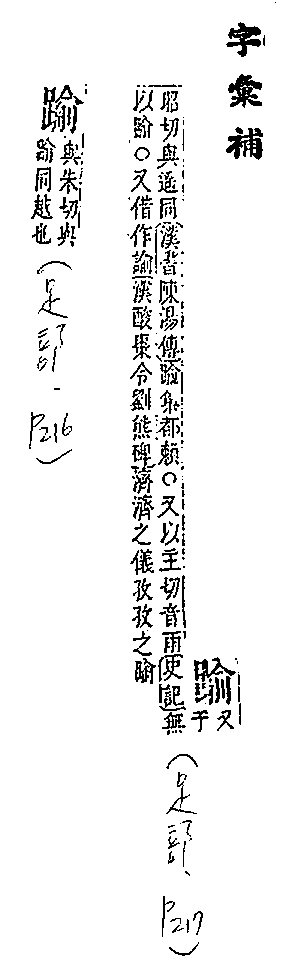 字彙補
踰又于
昭切與遥同漢書陳湯傳踰集都賴○又以主切音雨史記無
以踰○又借作諭漢酸棗令劉熊碑濟濟之儀孜孜之踰
(足部、P217)
踰與朱切與
踰同越也
(足部、P216)